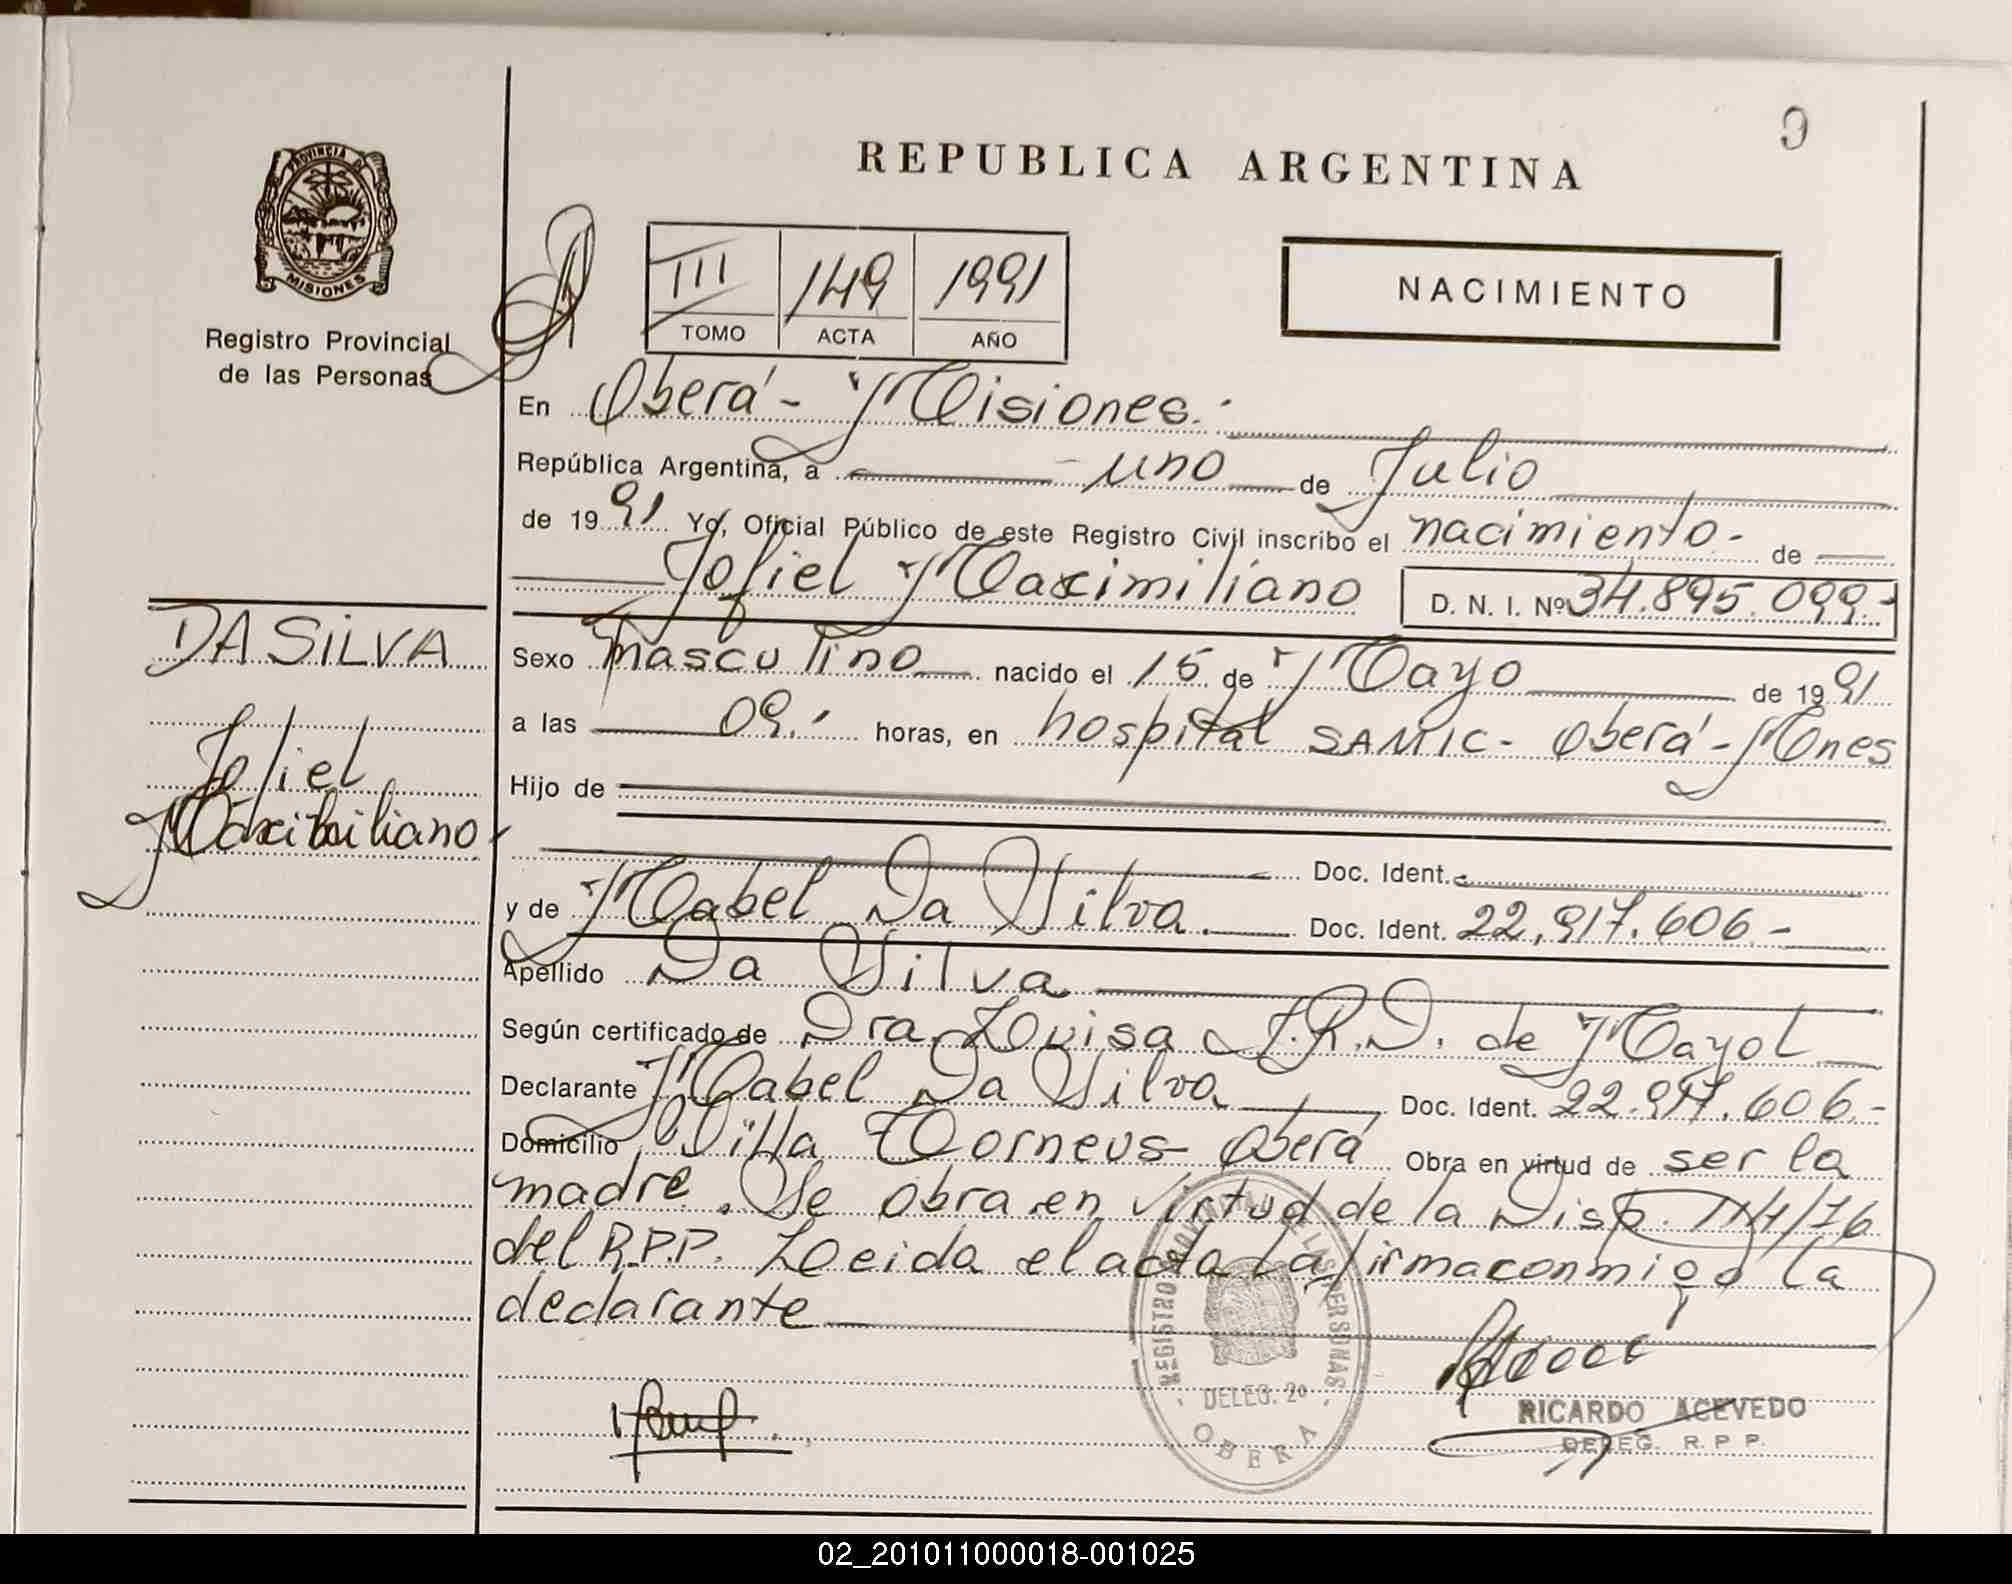 REPUBLICA ARGENTINA
PROVINCIA DE
MISIONES
Registro Provincial
de las Personas
III 149 1991
TOMO ACTA AÑO
NACIMIENTO
En Oberá - Misiones.-
República Argentina, a uno de Julio
de 1991 Yo, Oficial Público de este Registro Civil inscribo el nacimiento - de
Jofiel Maximiliano D. N. I. Nº 34.895.099.-
DA SILVA
Jofiel
Maximiliano
Sexo masculino nacido el 15 de Mayo de 1991
a las 09.- horas, en hospital SAMIC - Oberá - Mnes
Hijo de
Doc. Ident.
y de Mabel Da Silva. Doc. Ident. 22.917.606.-
Apellido Da Silva
Según certificado de Dra. Louisa F.R.D. de Mayol
Declarante Mabel Da Silva Doc. Ident. 22.917.606.-
Domicilio Villa Torneus - Oberá Obra en virtud de ser la
madre. Se obra en virtud de la Disp. /76
del R.P.P. Leida el acta la firma conmigo la
declarante
REGISTRO PROVINCIAL DE LAS PERSONAS
- DELEG. 2º -
OBERA
RICARDO ACEVEDO
DELEG. R. P. P.
02_201011000018-001025